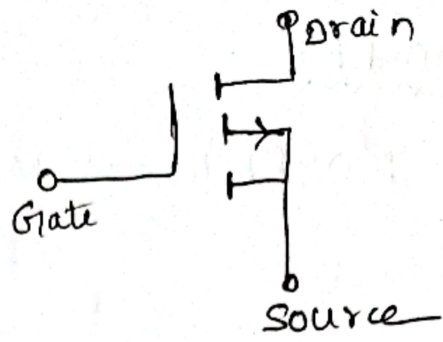 Drain
Gate
Source